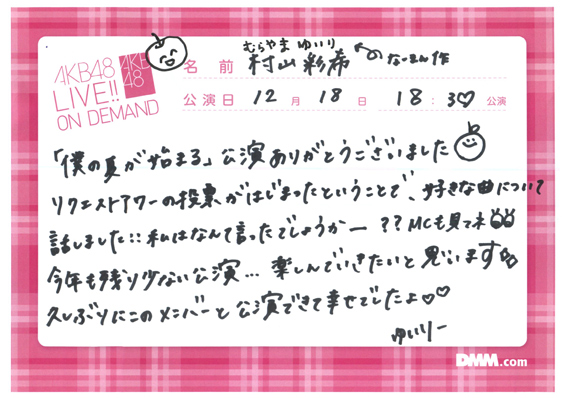 AKB48
LIVE!!
ON DEMAND
AKB
48
むらやま ゆいり
名前 村山彩希 なーまん作
公演日 12月18日 18:30公演
「僕の夏が始まる」公演ありがとうございました
リクエストアワーの投票がはじまったということで、好きな曲について
話しました!! 私はなんて言ったでしょうかー ??MCも見てネ
今年も残り少ない公演... 楽しんでいきたいと思います
久しぶりにこのメンバーと公演できて幸せでしたよ♡♡
ゆいりー
DMM.com